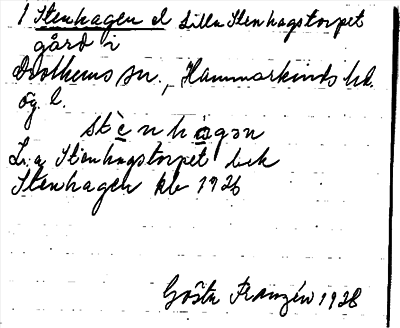 1 Stenhagen el Lilla Stenhagstorpet
gård i
Drothems sn., Hammarkinds hd.
Ög l.
stènhàgən
L:a Stenhagstorpet bek
Stenhagen kb 1926
Gösta Franzén 1928